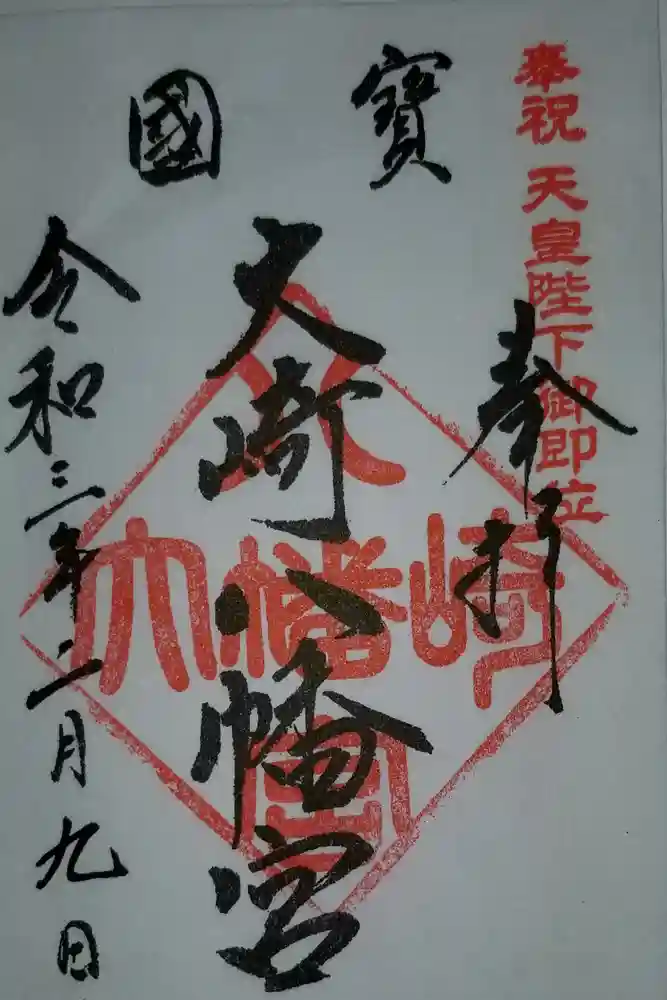 奉祝 天皇陛下御即位
奉拝
寶國
大崎八幡宮
大崎八幡宮
令和三年二月九日